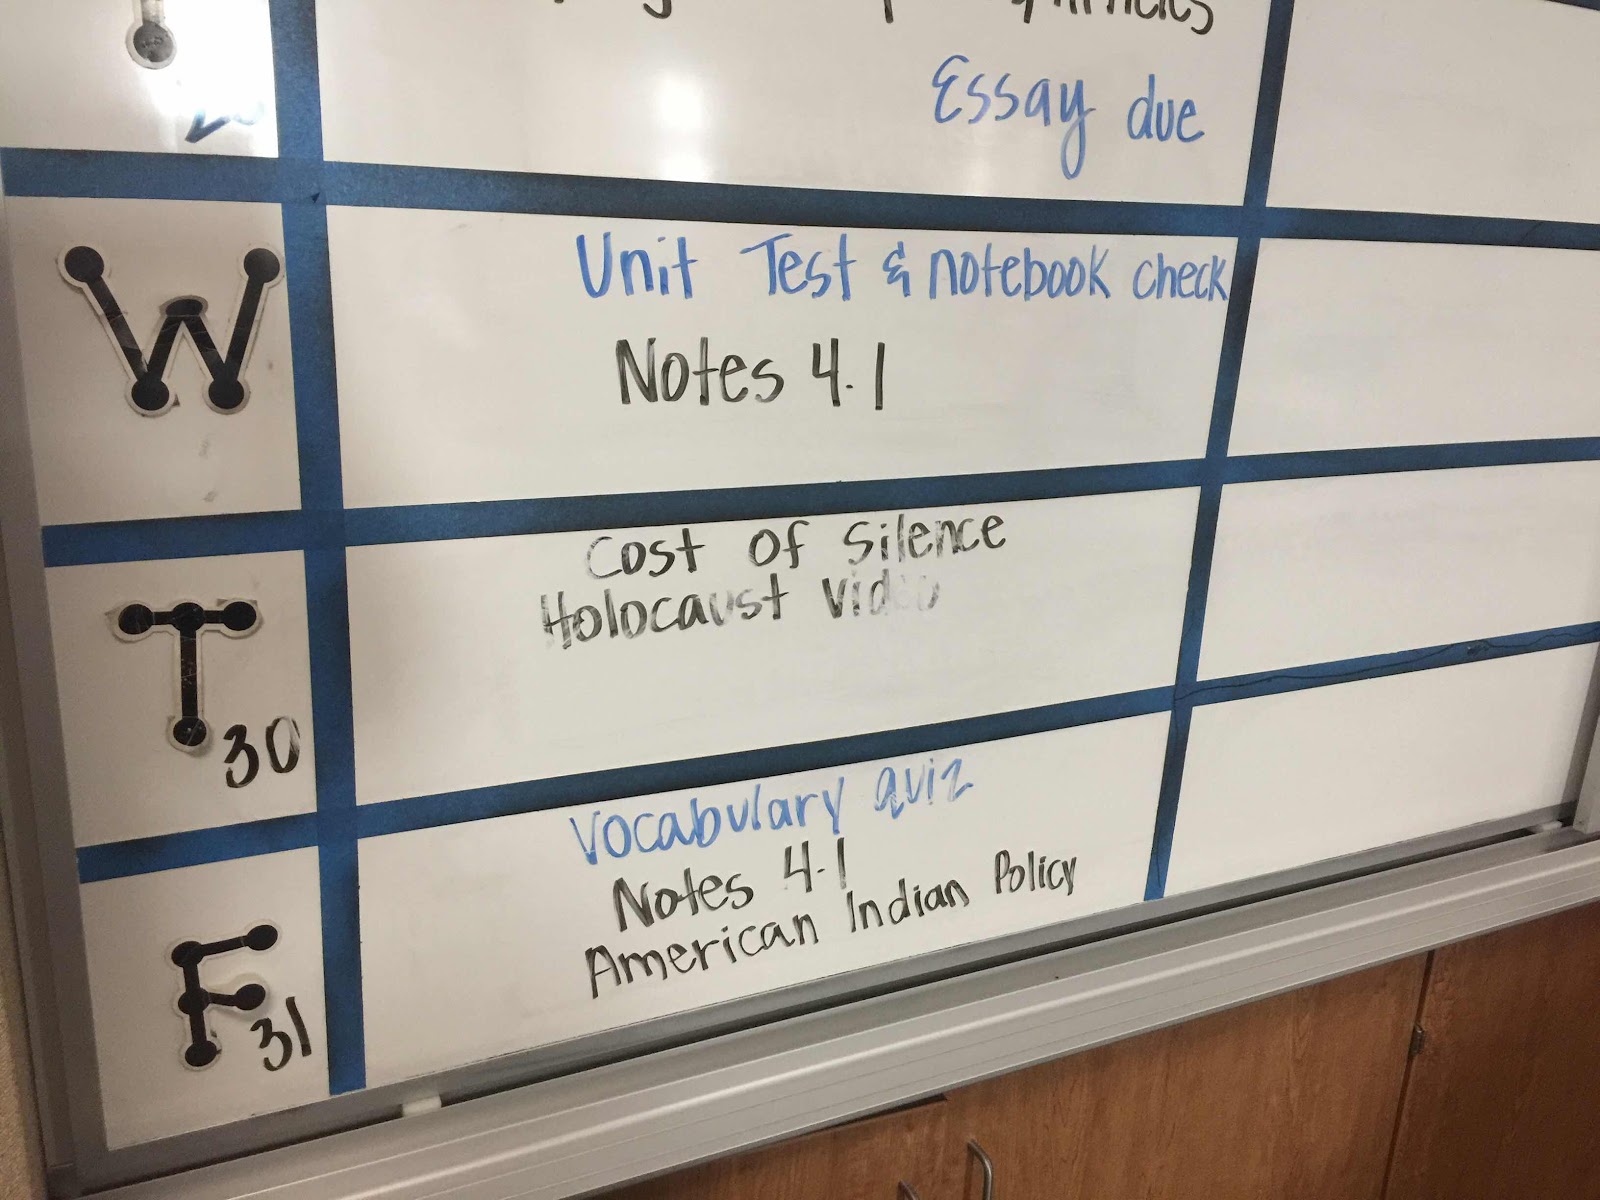 Essay due
W
Unit Test & notebook check
Notes 4.1
T
30
Cost of Silence
Holocaust video
F
31
Vocabulary quiz
Notes 4.1
American Indian Policy